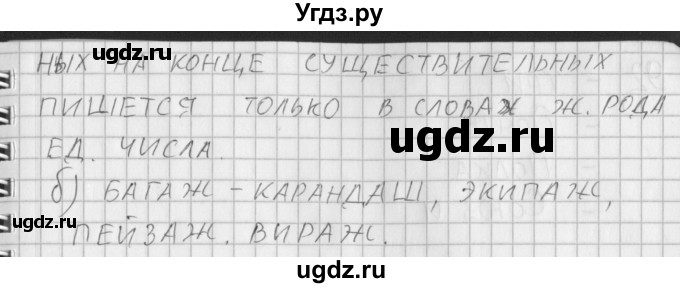 Угдз.ру
ugdz.ru
ugdz.ru
ugdz.ru
НЫХ НА КОНЦЕ СУЩЕСТВИТЕЛЬНЫХ
ПИШЕТСЯ ТОЛЬКО В СЛОВАХ Ж. РОДА
ugdz.ru
ЕД. ЧИСЛА.
б) БАГАЖ - КАРАНДАШ, ЭКИПАЖ,
ПЕЙЗАЖ. ВИРАЖ.
ugdz.ru
ugdz.ru
ugdz.ru